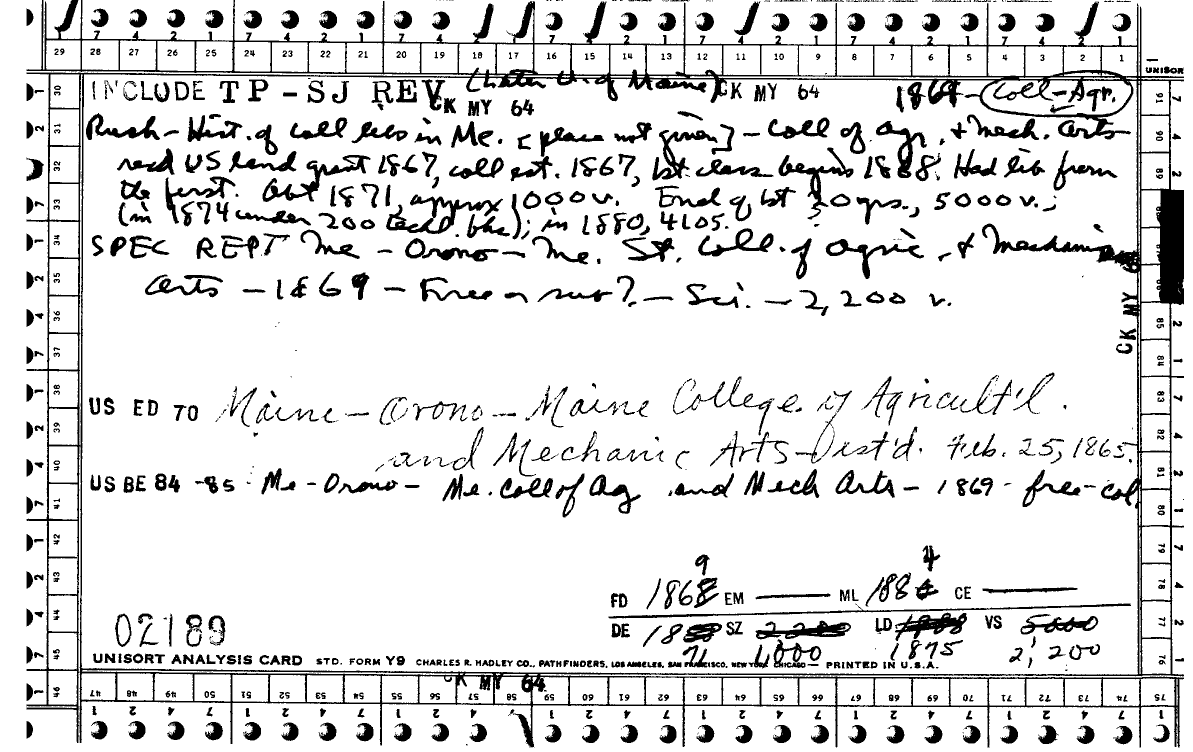 29 28 27 26 25 24 23 22 21 20 19 18 17 16 15 14 13 12 11 10 9 8 7 6 5 4 3 2 1
INCLUDE TP - SJ REV (Later U. of Maine) CK MY 64 1869 - Coll - Agr.
CK MY 64
Rush - Hist. of coll libs in Me. [place not given] - Coll of agr. & Mech. Arts
recd US land grant 1867, coll est. 1867, 1st class begins 1868. Had lib from
the first. Abt 1871, approx 1000 v. End of 1st 20 yrs., 5000 v.;
(in 1874 under 200 techl. bks); in 1880, 4105.
SPEC REPT Me - Orono - Me. St. Coll. of Agric. & Mechanic
Arts - 1869 - Free or sub? - Sci. - 2,200 v.
CK MY
US ED 70 Maine - Orono - Maine College of Agricult'l.
and Mechanic Arts - Est'd. Feb. 25, 1865.
US BE 84-85 Me - Orono - Me. Coll of Ag and Mech Arts - 1869 - free - col.
9 4
FD 1868 EM — ML 188 CE —
DE 18 SZ 2200 LD 1888 VS 5000
71 1,000 1875 2,200
02189
UNISORT ANALYSIS CARD STD. FORM Y9 CHARLES R. HADLEY CO., PATHFINDERS, LOS ANGELES, SAN FRANCISCO, NEW YORK, CHICAGO — PRINTED IN U.S.A.
CK MY 64
47 48 49 50 51 52 53 54 55 56 57 58 59 60 61 62 63 64 65 66 67 68 69 70 71 72 73 74 75